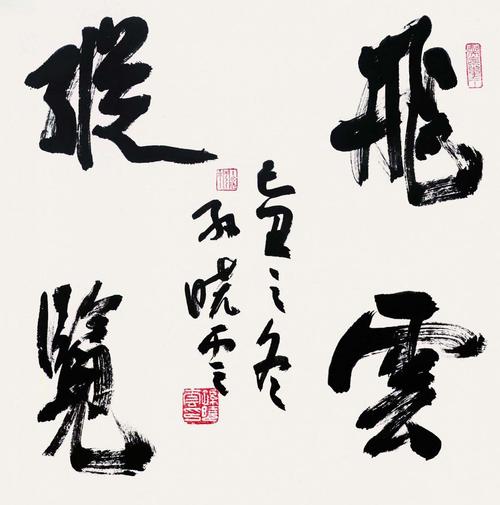 飛雲
縱覽
己丑之冬
孫曉雲